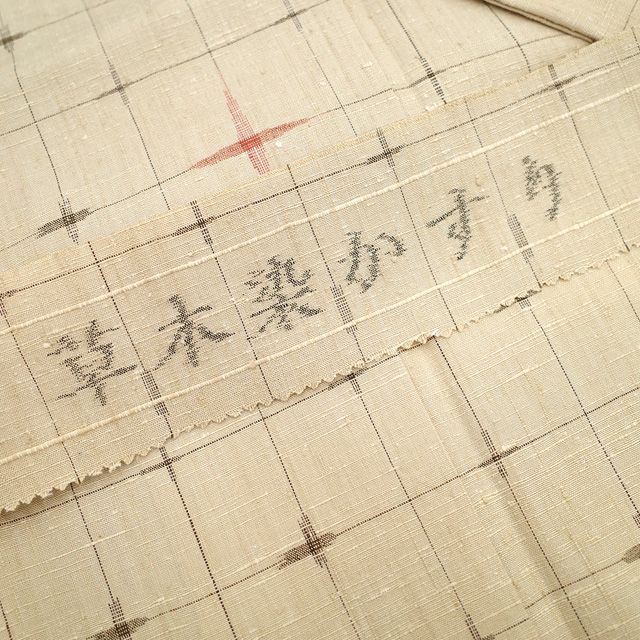 草木染かすり